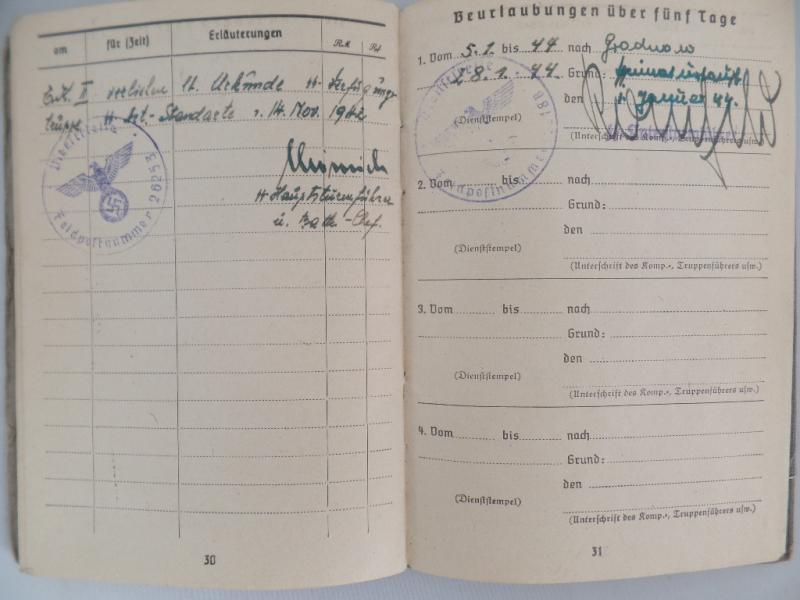 am für (Zeit) Erläuterungen RM Rpf
II verliehen lt. Urkunde
v. 14. Nov. 1942
Dienststelle
Feldpostnummer 26253
Hauptsturmführer
u. Battr.-Chef.
30
Beurlaubungen über fünf Tage
1. Vom 5.1. bis 44 nach
28.1.44. Grund: Heimaturlaub
den 1. Januar 44.
(Dienststempel)
Feldpostnummer
(Unterschrift des Komp.-, Truppenführers usw.)
2. Vom bis nach
Grund:
den
(Dienststempel)
(Unterschrift des Komp.-, Truppenführers usw.)
3. Vom bis nach
Grund:
den
(Dienststempel)
(Unterschrift des Komp.-, Truppenführers usw.)
4. Vom bis nach
Grund:
den
(Dienststempel)
(Unterschrift des Komp.-, Truppenführers usw.)
31